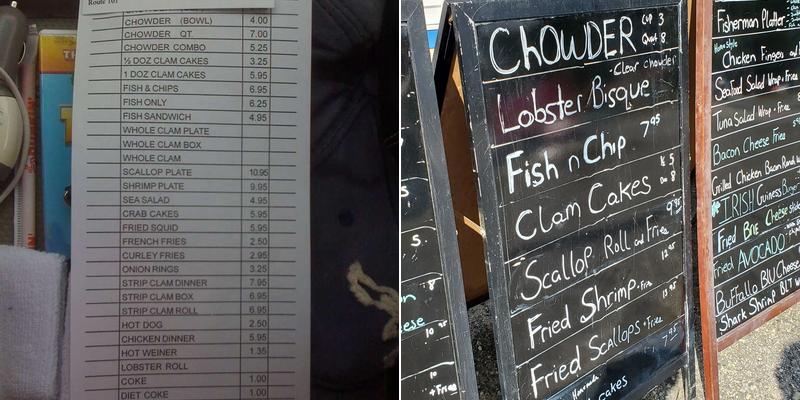 Route 101
CHOWDER (BOWL) 4.00
CHOWDER QT. 7.00
CHOWDER COMBO 5.25
½ DOZ CLAM CAKES 3.25
1 DOZ CLAM CAKES 5.95
FISH & CHIPS 6.95
FISH ONLY 6.25
FISH SANDWICH 4.95
WHOLE CLAM PLATE
WHOLE CLAM BOX
WHOLE CLAM
SCALLOP PLATE 10.95
SHRIMP PLATE 9.95
SEA SALAD 4.95
CRAB CAKES 5.95
FRIED SQUID 5.95
FRENCH FRIES 2.50
CURLEY FRIES 2.95
ONION RINGS 3.25
STRIP CLAM DINNER 7.95
STRIP CLAM BOX 6.95
STRIP CLAM ROLL 6.95
HOT DOG 2.50
CHICKEN DINNER 5.95
HOT WEINER 1.35
LOBSTER ROLL
COKE 1.00
DIET COKE 1.00
CHOWDER Cup 3
Quart 8
-Clear chowder
Lobster Bisque
Fish n Chip 7.95
Clam Cakes ½ 5
Doz 8
Scallop Roll and Fries 9.95
Fried Shrimp + Fries 12.95
Fried Scallops + Fries 13.95
Homemade 7.95
cakes
Fisherman Platter
Home Style
Chicken Fingers and
Seafood Salad Wrap + Fries
Tuna Salad Wrap + Fries
Bacon Cheese Fries
Grilled Chicken Bacon Ranch
IRISH Guiness Burger
Fried Brie Cheese Sticks
Fried AVOCADO
Buffallo Blu Cheese
Shark Shrimp BLT
10.95
10
+ Fries